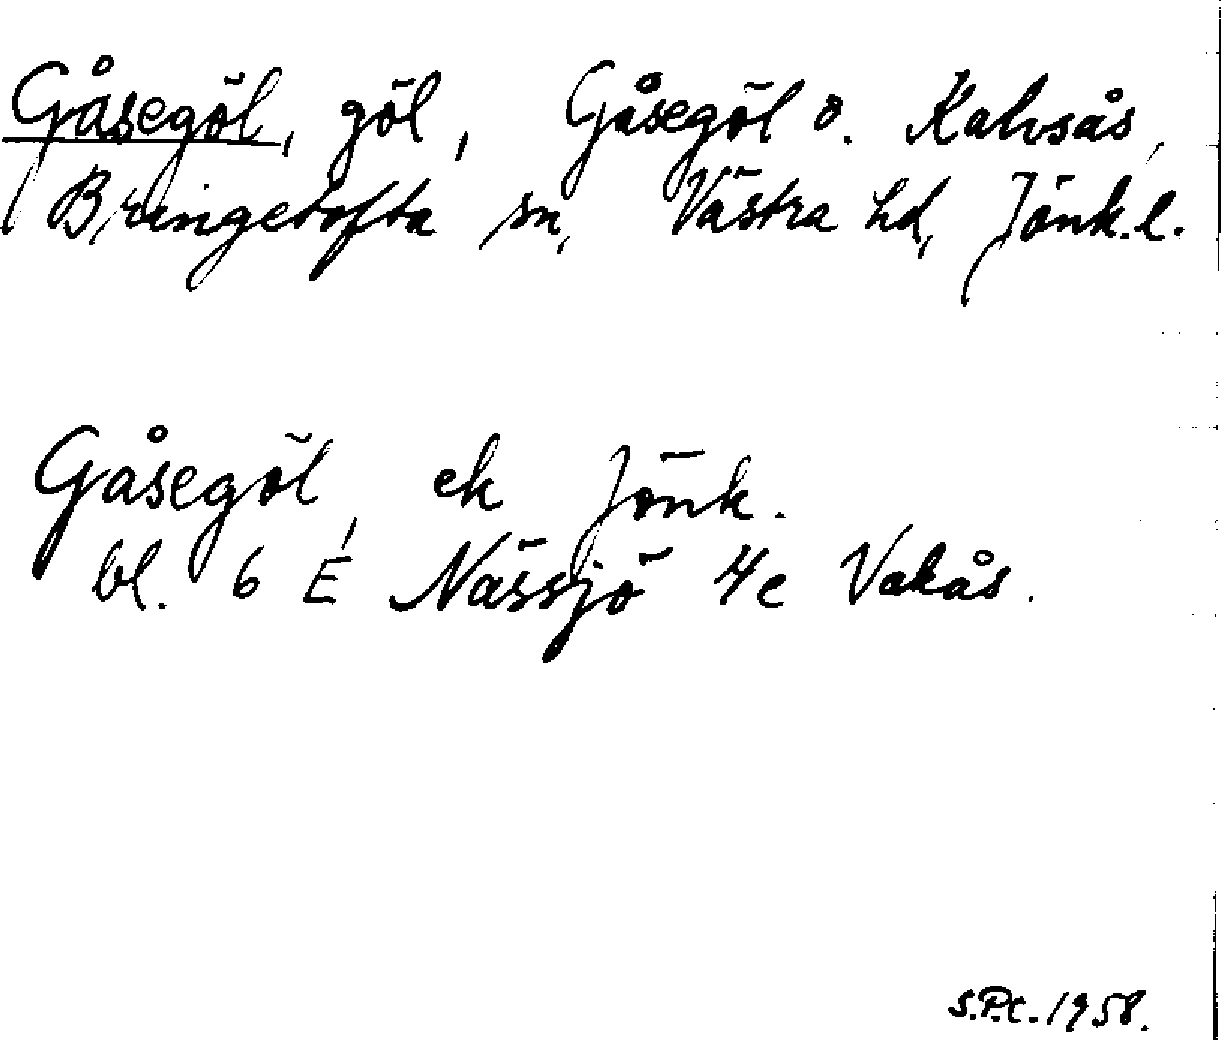 Gåsegöl, göl, Gåsegöl o. Kalvsås,
Bringetofta sn, Västra hd, Jönk.l.
Gåsegöl, ek Jönk.
bl. 6 E Nässjö 4c Vakås.
S.P.C. 1958.